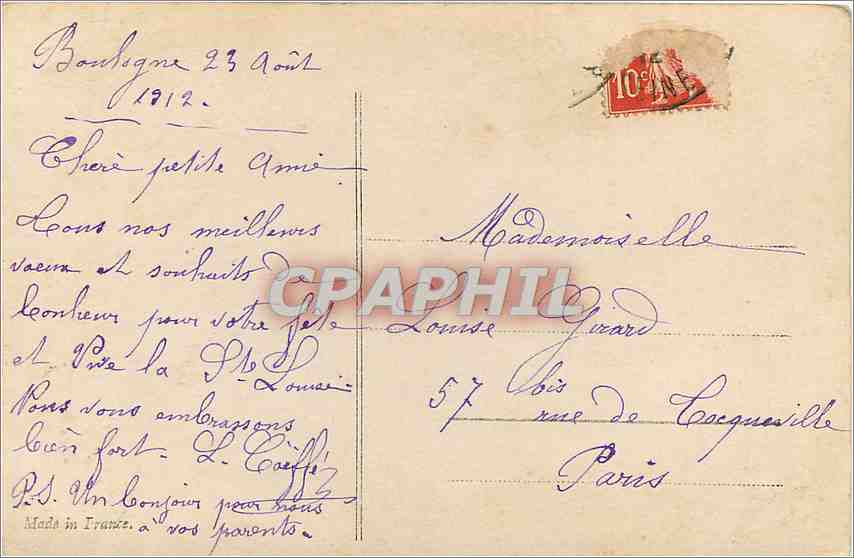 Boulogne 23 Août
1912.
Chère petite amie
Tous nos meilleurs
voeux et souhaits de
bonheur pour votre fête
et Vive la Ste Louise
Nous vous embrassons
bien fort. L. Coëffé
P.S. Un bonjour pour nous
à vos parents.
Made in France.
10c
INE
Mademoiselle
Louise Girard
57 bis
rue de Tocqueville
Paris
CPAPHIL